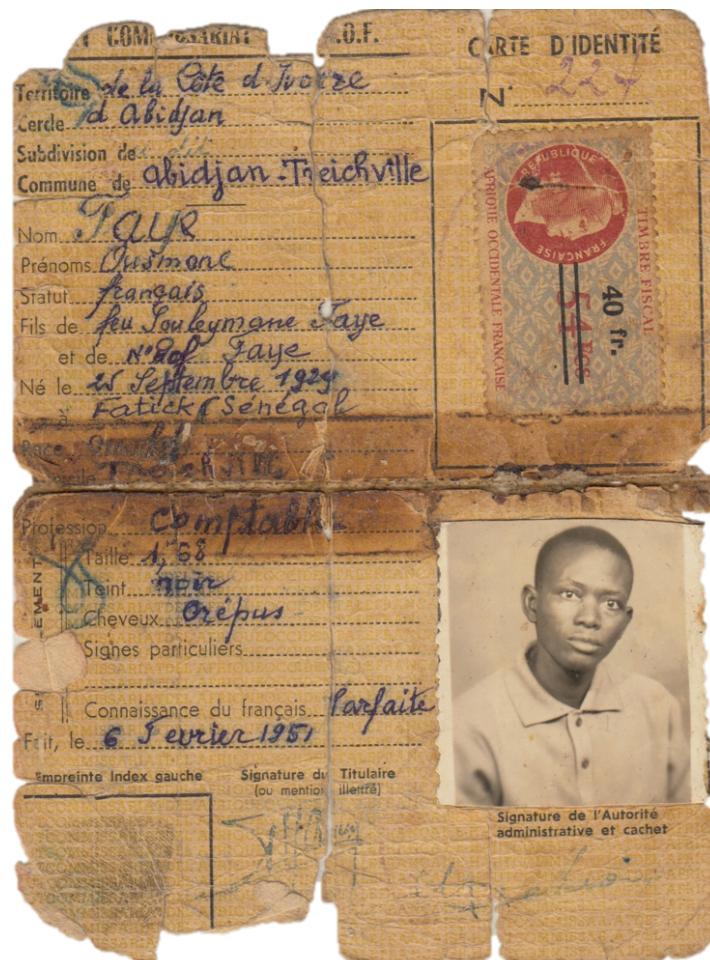 COMMISSARIAT
O.F.
CARTE D'IDENTITÉ
N. 224
Territoire de la Côte d'Ivoire
Cercle d'Abidjan
Subdivision de
Commune de Abidjan-Treichville
Nom Faye
Prénoms Ousmane
Statut français
Fils de feu Souleymane Faye
et de Faye
Né le 25 Septembre 1929
à Fatick (Sénégal)
Race
Treichville
RÉPUBLIQUE FRANÇAISE
AFRIQUE OCCIDENTALE FRANÇAISE
TIMBRE FISCAL
40 fr.
Profession Comptable
Taille 1,68
Teint noir
Cheveux Crépus
Signes particuliers
Connaissance du français Parfaite
Fait, le 6 Fevrier 1951
Empreinte Index gauche
Signature du Titulaire
(ou mention illettré)
Signature de l'Autorité
administrative et cachet